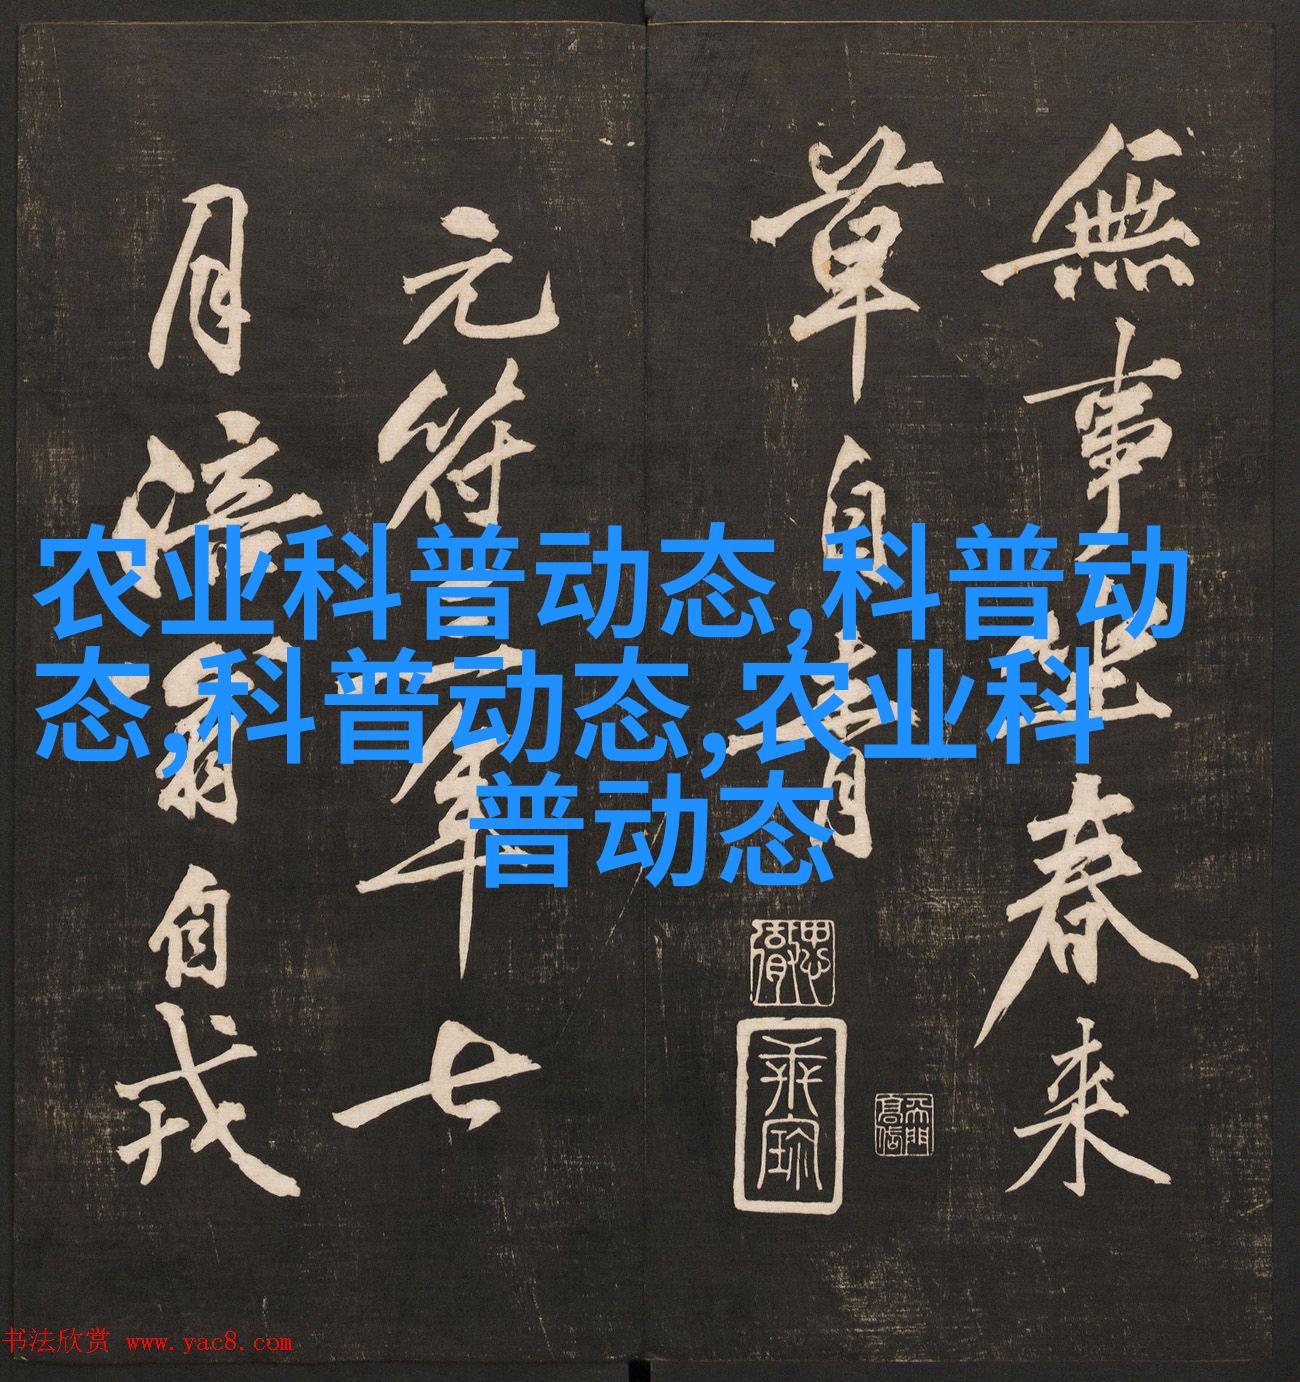 無事坐春来
草自青
元符三年七
月涪翁自戎
农业科普动态,科普动
态,科普动态,农业科
普动态
书法欣赏 www.yac8.com